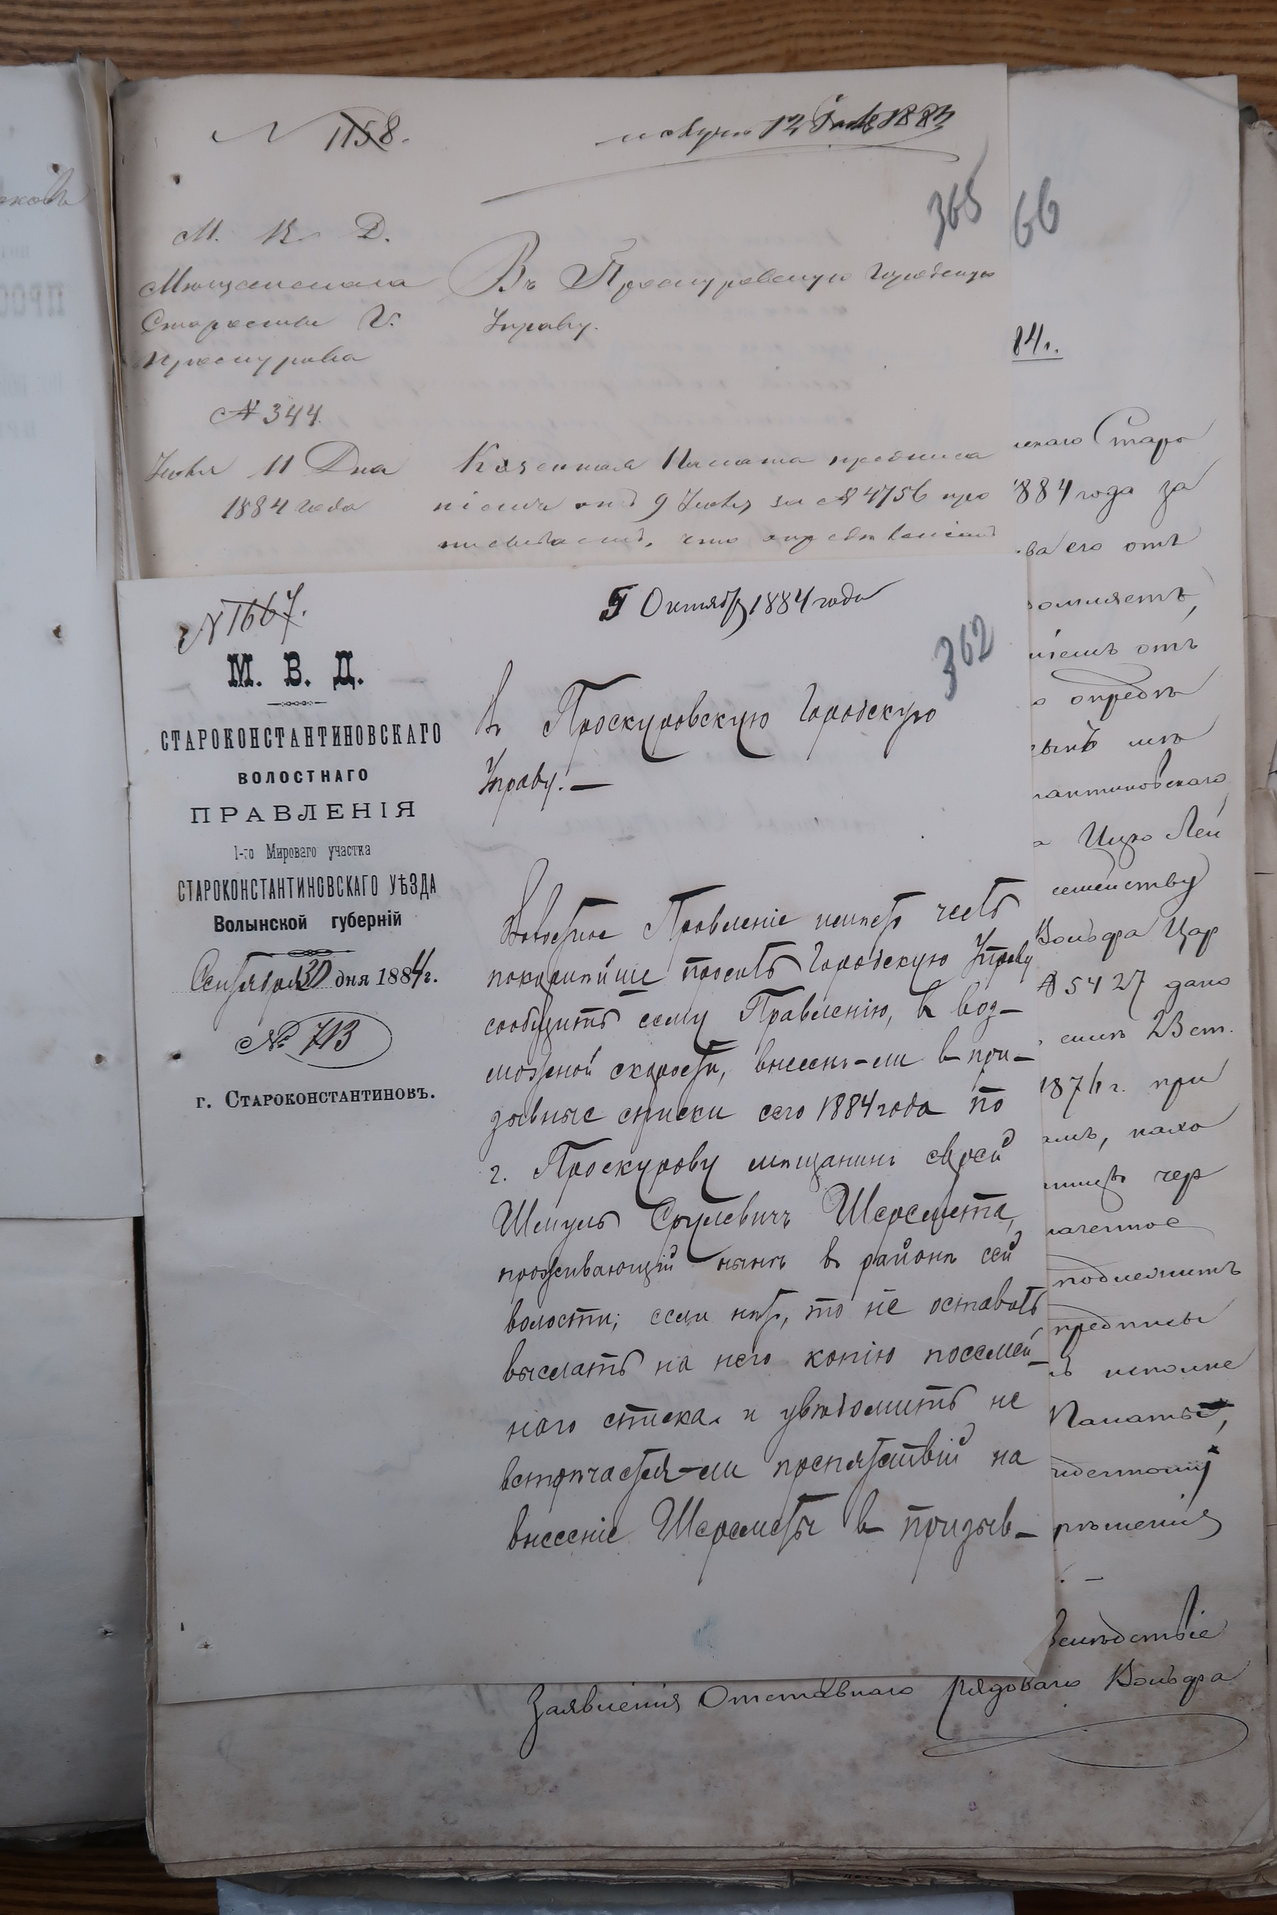 N 1158.
получ. 12 Іюля 1884
365
М. В. Д.
Мещанскаго
Старосты г.
Проскурова
№ 344.
Іюля 11 Дня
1884 года
Въ Проскуровскую Городскую
Управу.
Казенная Палата предписа
ніемъ отъ 9 Іюля за № 4756 про
что
66
84 г.
скаго Старо
1884 года за
ва его отъ
омляетъ,
ніемъ отъ
о опредѣ
нтиновскаго
Лей
семейству
Вольфа Цар
№ 5427 дано
23 ст.
1876 г. при
амъ, нахо
чер
наченное
подлежитъ
предписы
исполне
Палаты,
рѣшенія
Вслѣдствіе
Заявленія Отставнаго рядоваго Вольфа
N 1667.
5 Октября 1884 года
362
М. В. Д.
СТАРОКОНСТАНТИНОВСКАГО
ВОЛОСТНАГО
ПРАВЛЕНІЯ
1-го Мироваго участка
СТАРОКОНСТАНТИНОВСКАГО УѢЗДА
Волынской губерніи
Сентября 30 дня 1884 г.
№ 713
г. Старокойстантиновъ.
Въ Проскуровскую Городскую
Управу.—
Волостное Правленіе имѣетъ честь
покорнѣйше просить Городскую Управу
сообщить сему Правленію, въ воз-
можной скорости, внесенъ-ли в при-
зывные списки сего 1884 года по
г. Проскурову мѣщанинъ еврей
Шмуль Срулевичъ Шеремета,
проживающій нынѣ въ районѣ сей
волости; если нѣтъ, то не оставить
выслать на него копію посемей-
наго списка и увѣдомить не
встрѣчается-ли препятствій на
внесеніе Шереметы в призыв-